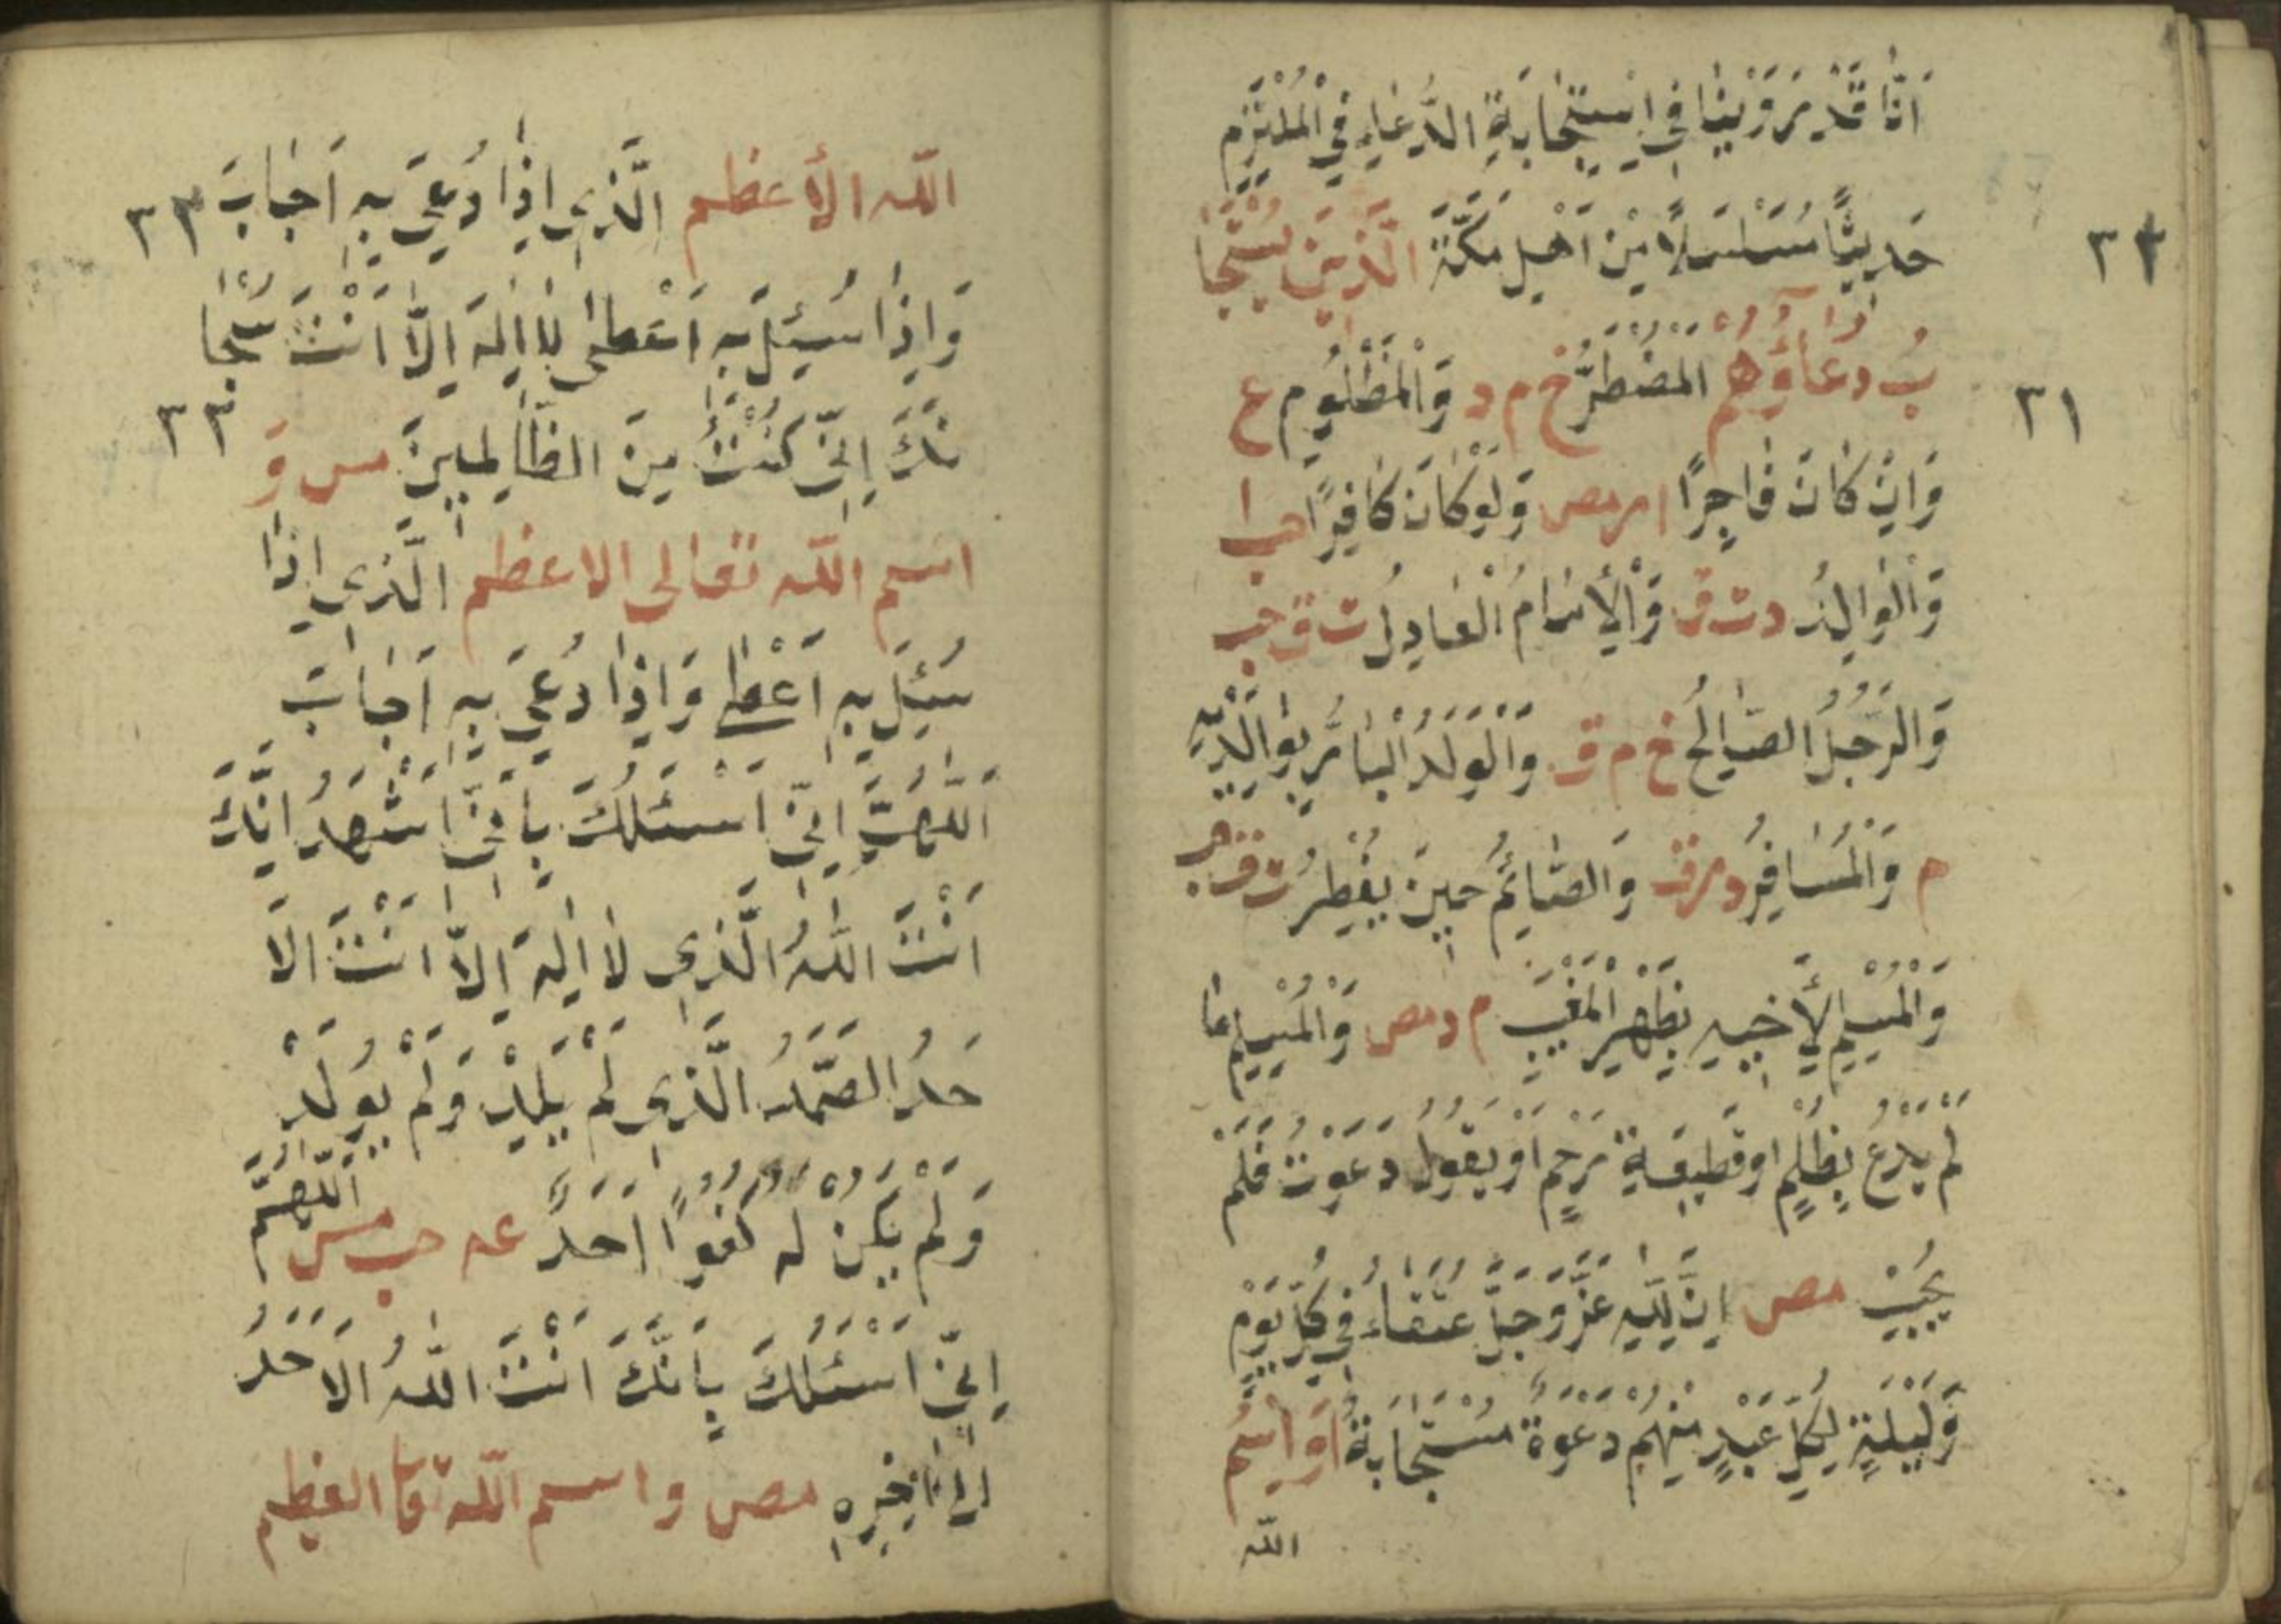 اَنَّا قَدْ رَوَيْنَا فِي اِسْتِجَابَةِ الدُّعَاءِ فِي الْمُلْتَزَمِ
حَدِيثًا مُسَلْسَلًا مِنْ اَهْلِ مَكَّةَ الَّذِينَ يُسْتَجَا
٢٣
بُ دُعَاؤُهُمْ الْمُضْطَرُّ خ م د وَالْمَظْلُومُ ع
٢١
وَاِنْ كَانَ فَاجِرًا ا ر مص وَلَوْ كَانَ كَافِرًا حب ا
وَالْوَالِدُ د ت ق وَالْاِمَامُ الْعَادِلُ ت ق حب
وَالرَّجُلُ الصَّالِحُ خ م ق وَالْوَلَدُ الْبَارُّ بِوَالِدَيْهِ
م وَالْمُسَافِرُ د ر ق وَالصَّائِمُ حِينَ يُفْطِرُ ت ق حب
وَالْمُسْلِمُ لِاَخِيهِ بِظَهْرِ الْغَيْبِ م د مص وَالْمُسْلِمُ مَا
لَمْ يَدْعُ بِظُلْمٍ اَوْ قَطِيعَةِ رَحِمٍ اَوْ يَقُولُ دَعَوْتُ فَلَمْ
يُجَبْ مص اِنَّ لِلّٰهِ عَزَّ وَجَلَّ عُتَقَاءَ فِي كُلِّ يَوْمٍ
وَلَيْلَةٍ لِكُلِّ عَبْدٍ مِنْهُمْ دَعْوَةٌ مُسْتَجَابَةٌ ا وَاسْمُ
الله
الله الأعظم الَّذِي اِذَا دُعِيَ بِهِ اَجَابَ
٢٣
وَاِذَا سُئِلَ بِهِ اَعْطٰى لَا اِلٰهَ اِلَّا اَنْتَ سُبْحَا
نَكَ اِنِّي كُنْتُ مِنَ الظَّالِمِينَ مس وَ
٢٣
اسم الله تعالى الاعظم الَّذِي اِذَا
سُئِلَ بِهِ اَعْطٰى وَاِذَا دُعِيَ بِهِ اَجَابَ
اَللّٰهُمَّ اِنِّي اَسْئَلُكَ بِاَنِّي اَشْهَدُ اَنَّكَ
اَنْتَ اللّٰهُ الَّذِي لَا اِلٰهَ اِلَّا اَنْتَ الْاَ
حَدُ الصَّمَدُ الَّذِي لَمْ يَلِدْ وَلَمْ يُولَدْ
وَلَمْ يَكُنْ لَهُ كُفُوًا اَحَدٌ عه حب مس اَللّٰهُمَّ
اِنِّي اَسْئَلُكَ بِاَنَّكَ اَنْتَ اللّٰهُ الْاَحَدُ
اِلٰى اٰخِرِهِ مص واسم الله تعا العظيم